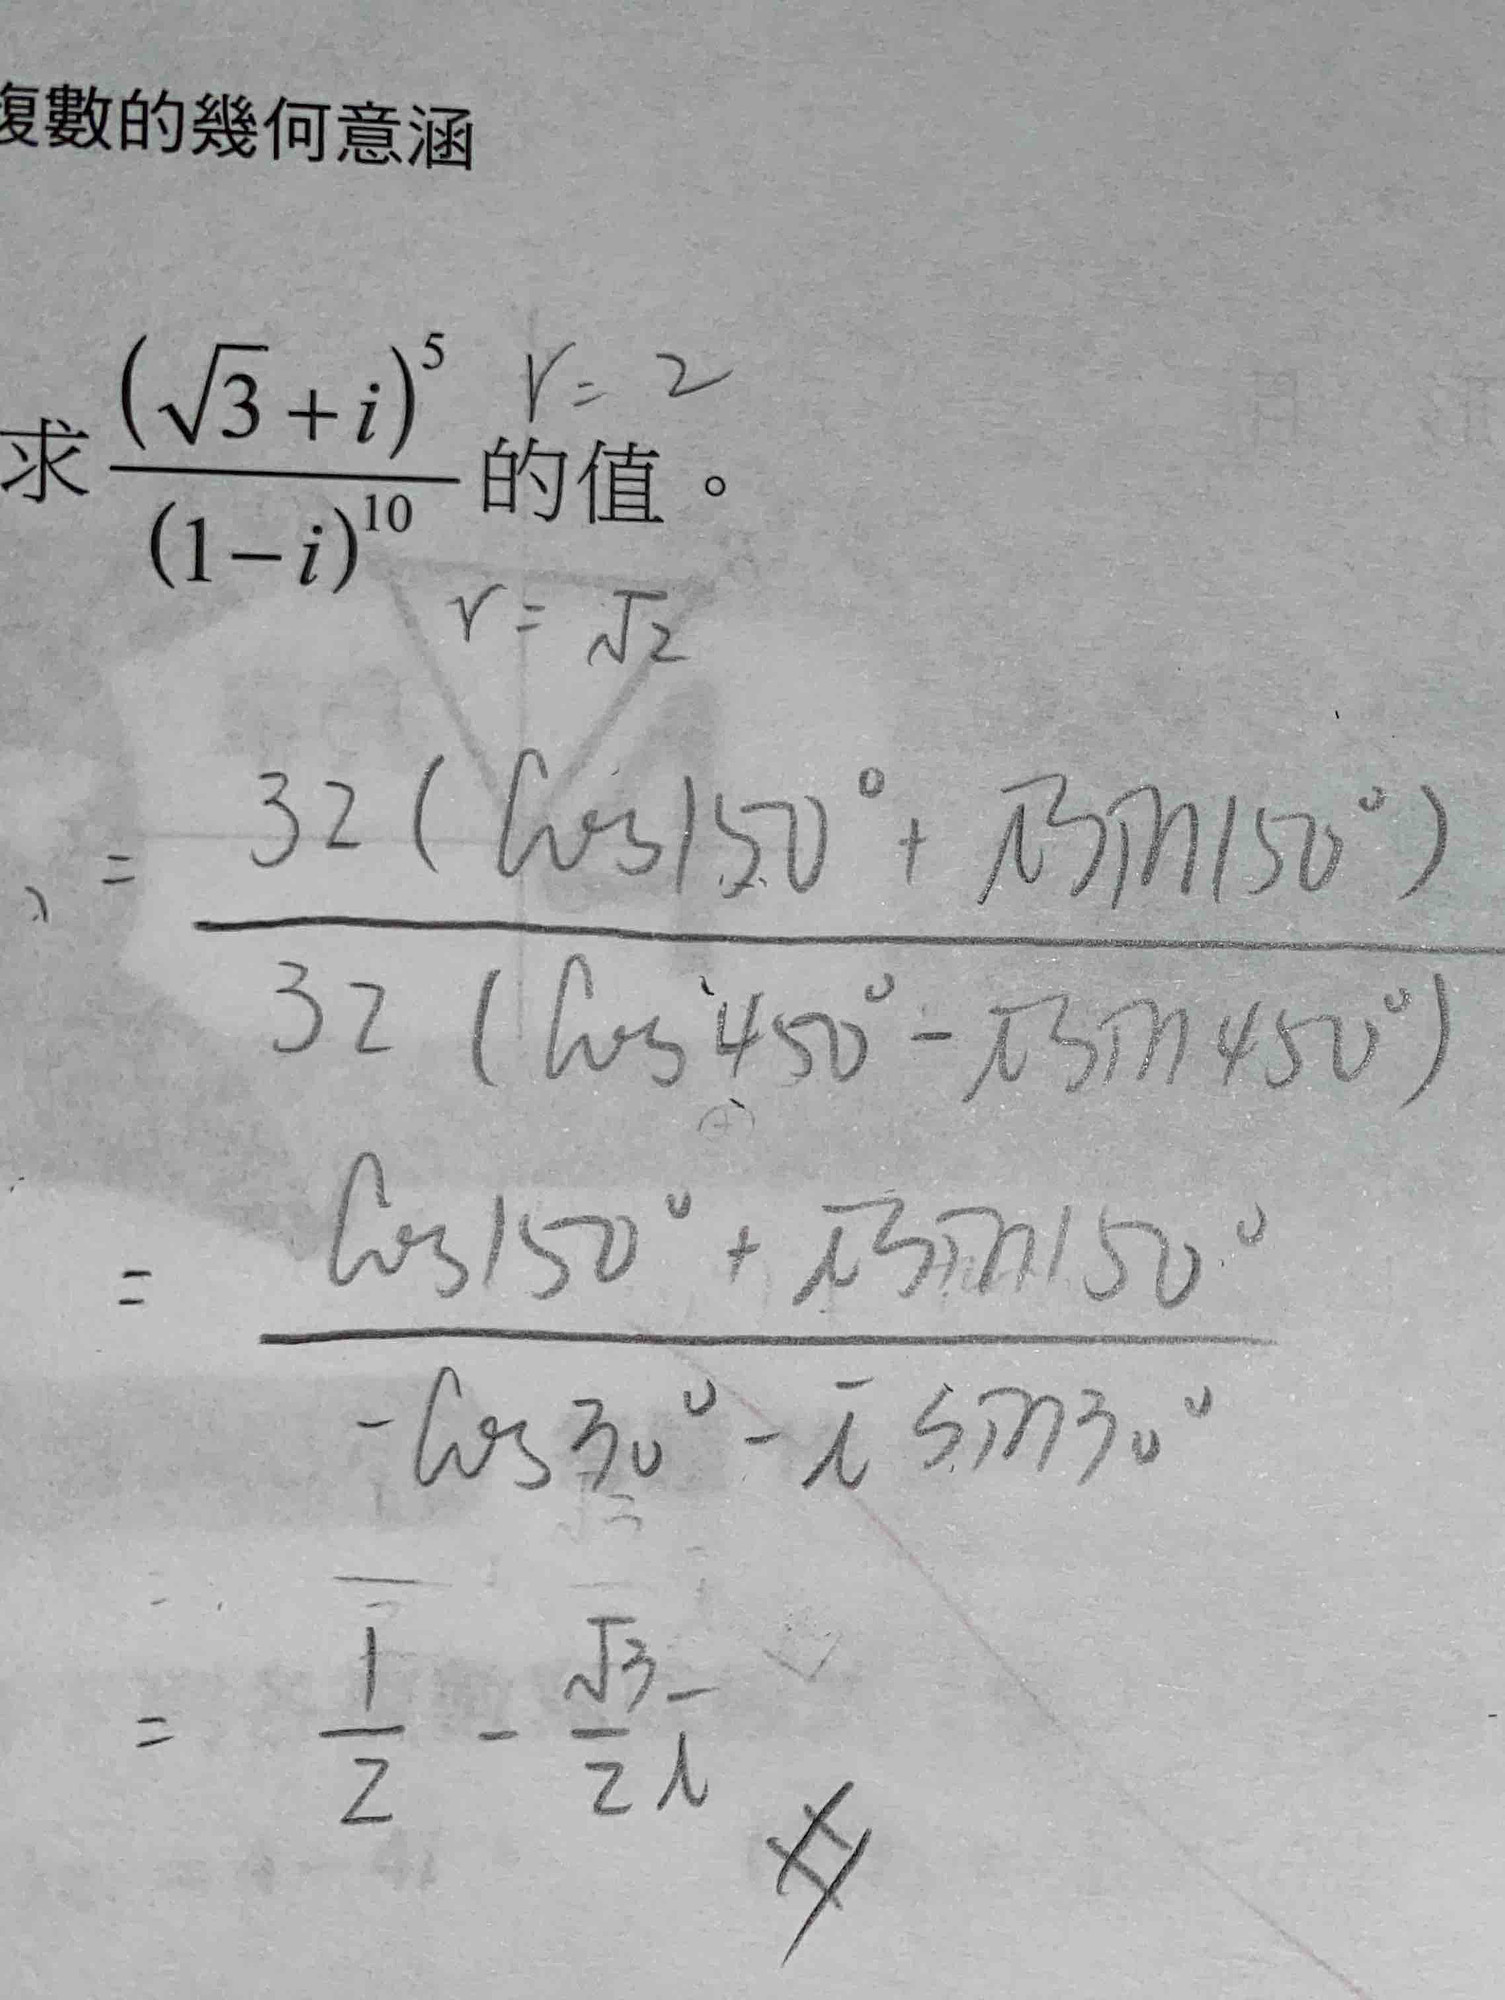 複數的幾何意涵
求 (√3+i)^5 / (1-i)^10 的值。 r=2
r=√2
= 32(cos150°+isin150°) / 32(cos450°-isin450°)
= cos150°+isin150° / -cos30°-isin30°
= 1/2 - √3/2 i